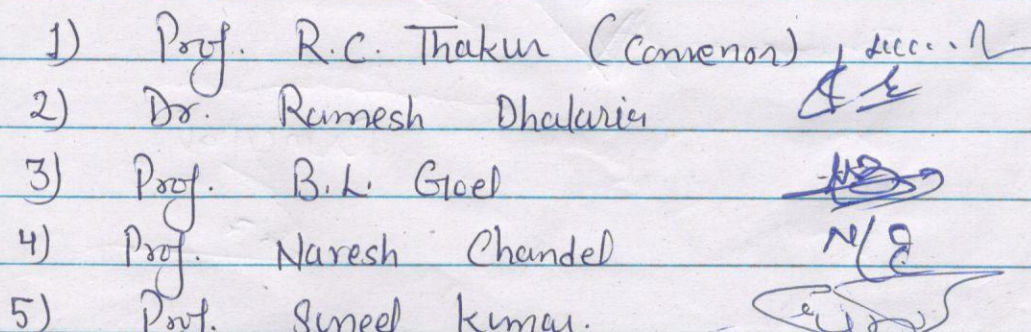 1) Prof. R.C. Thakur (Convenor)
2) Dr. Ramesh Dhalaria
3) Prof. B.L. Goel
4) Prof. Naresh Chandel
5) Prof. Suneel Kumar.